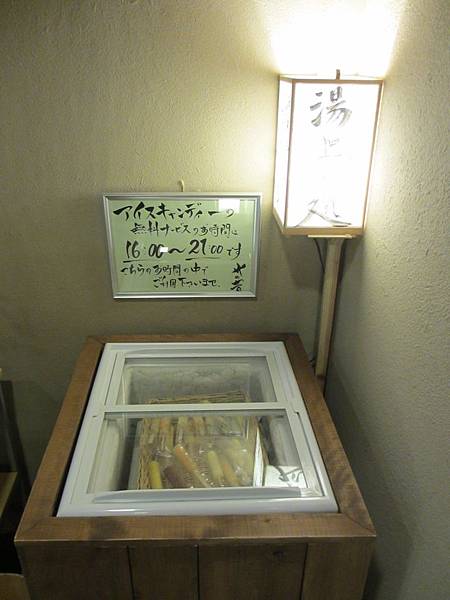 アイスキャンディーの
無料サービスのお時間は
16:00〜21:00です
こちらのお時間の中で
ご利用下さいませ。
湯上り処